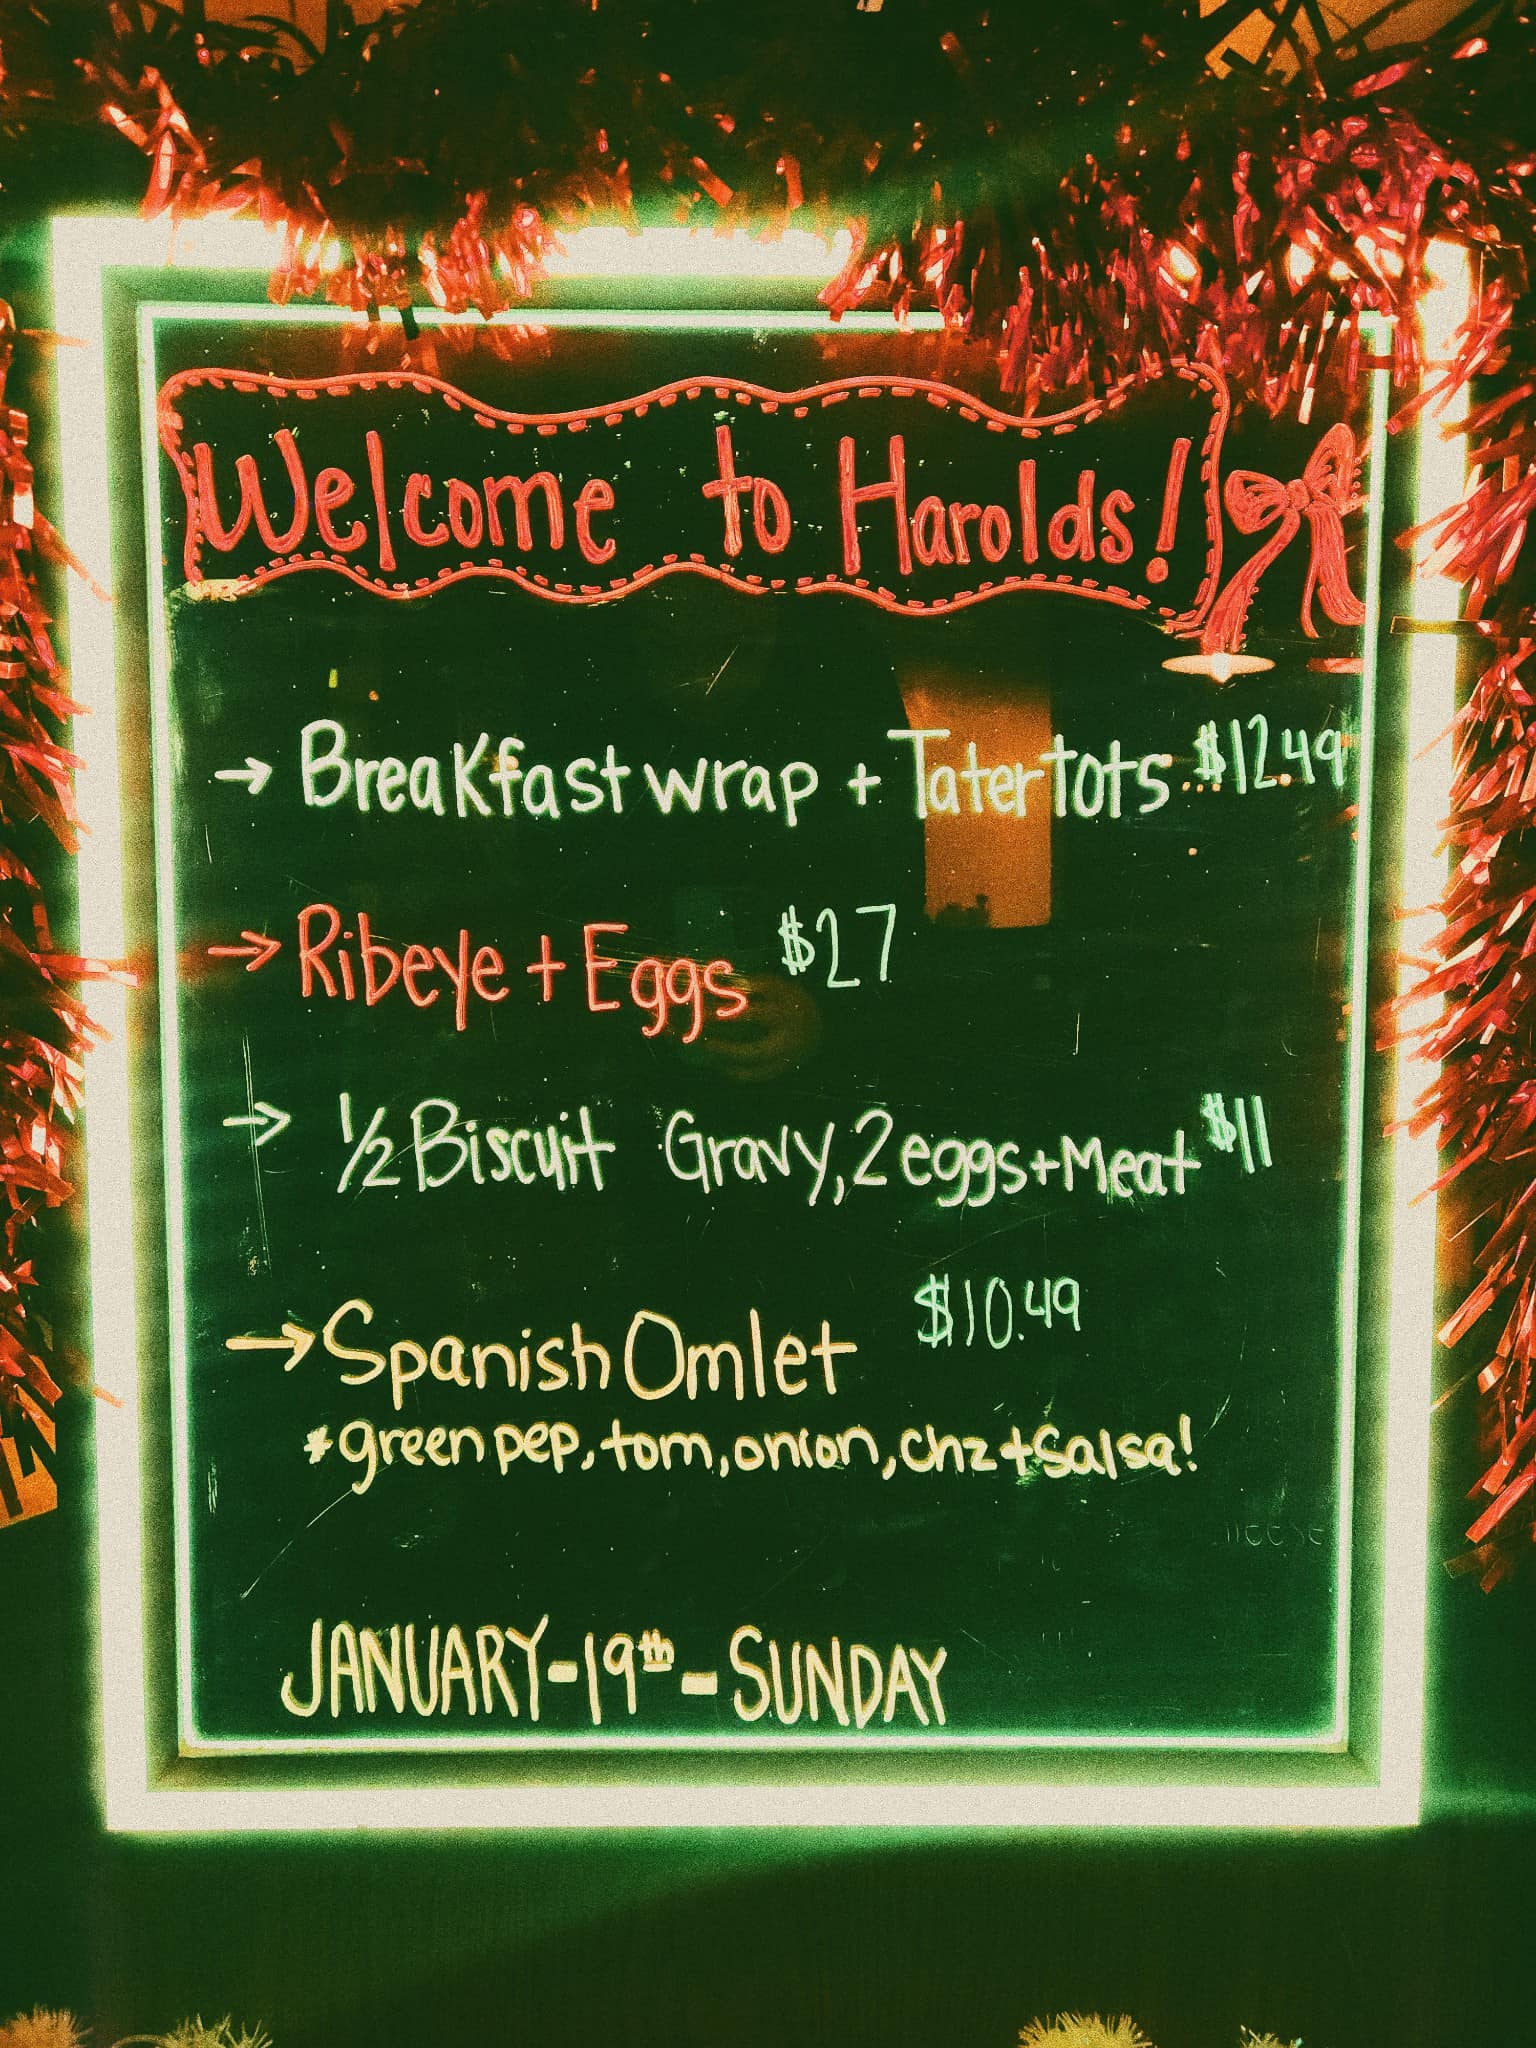 Welcome to Harolds!
→ Breakfast wrap + Tater tots $12.49
→ Ribeye + Eggs $27
→ ½ Biscuit Gravy, 2 eggs + Meat $11
→ Spanish Omlet $10.49
* green pep, tom, onion, chz + Salsa!
JANUARY - 19th - SUNDAY